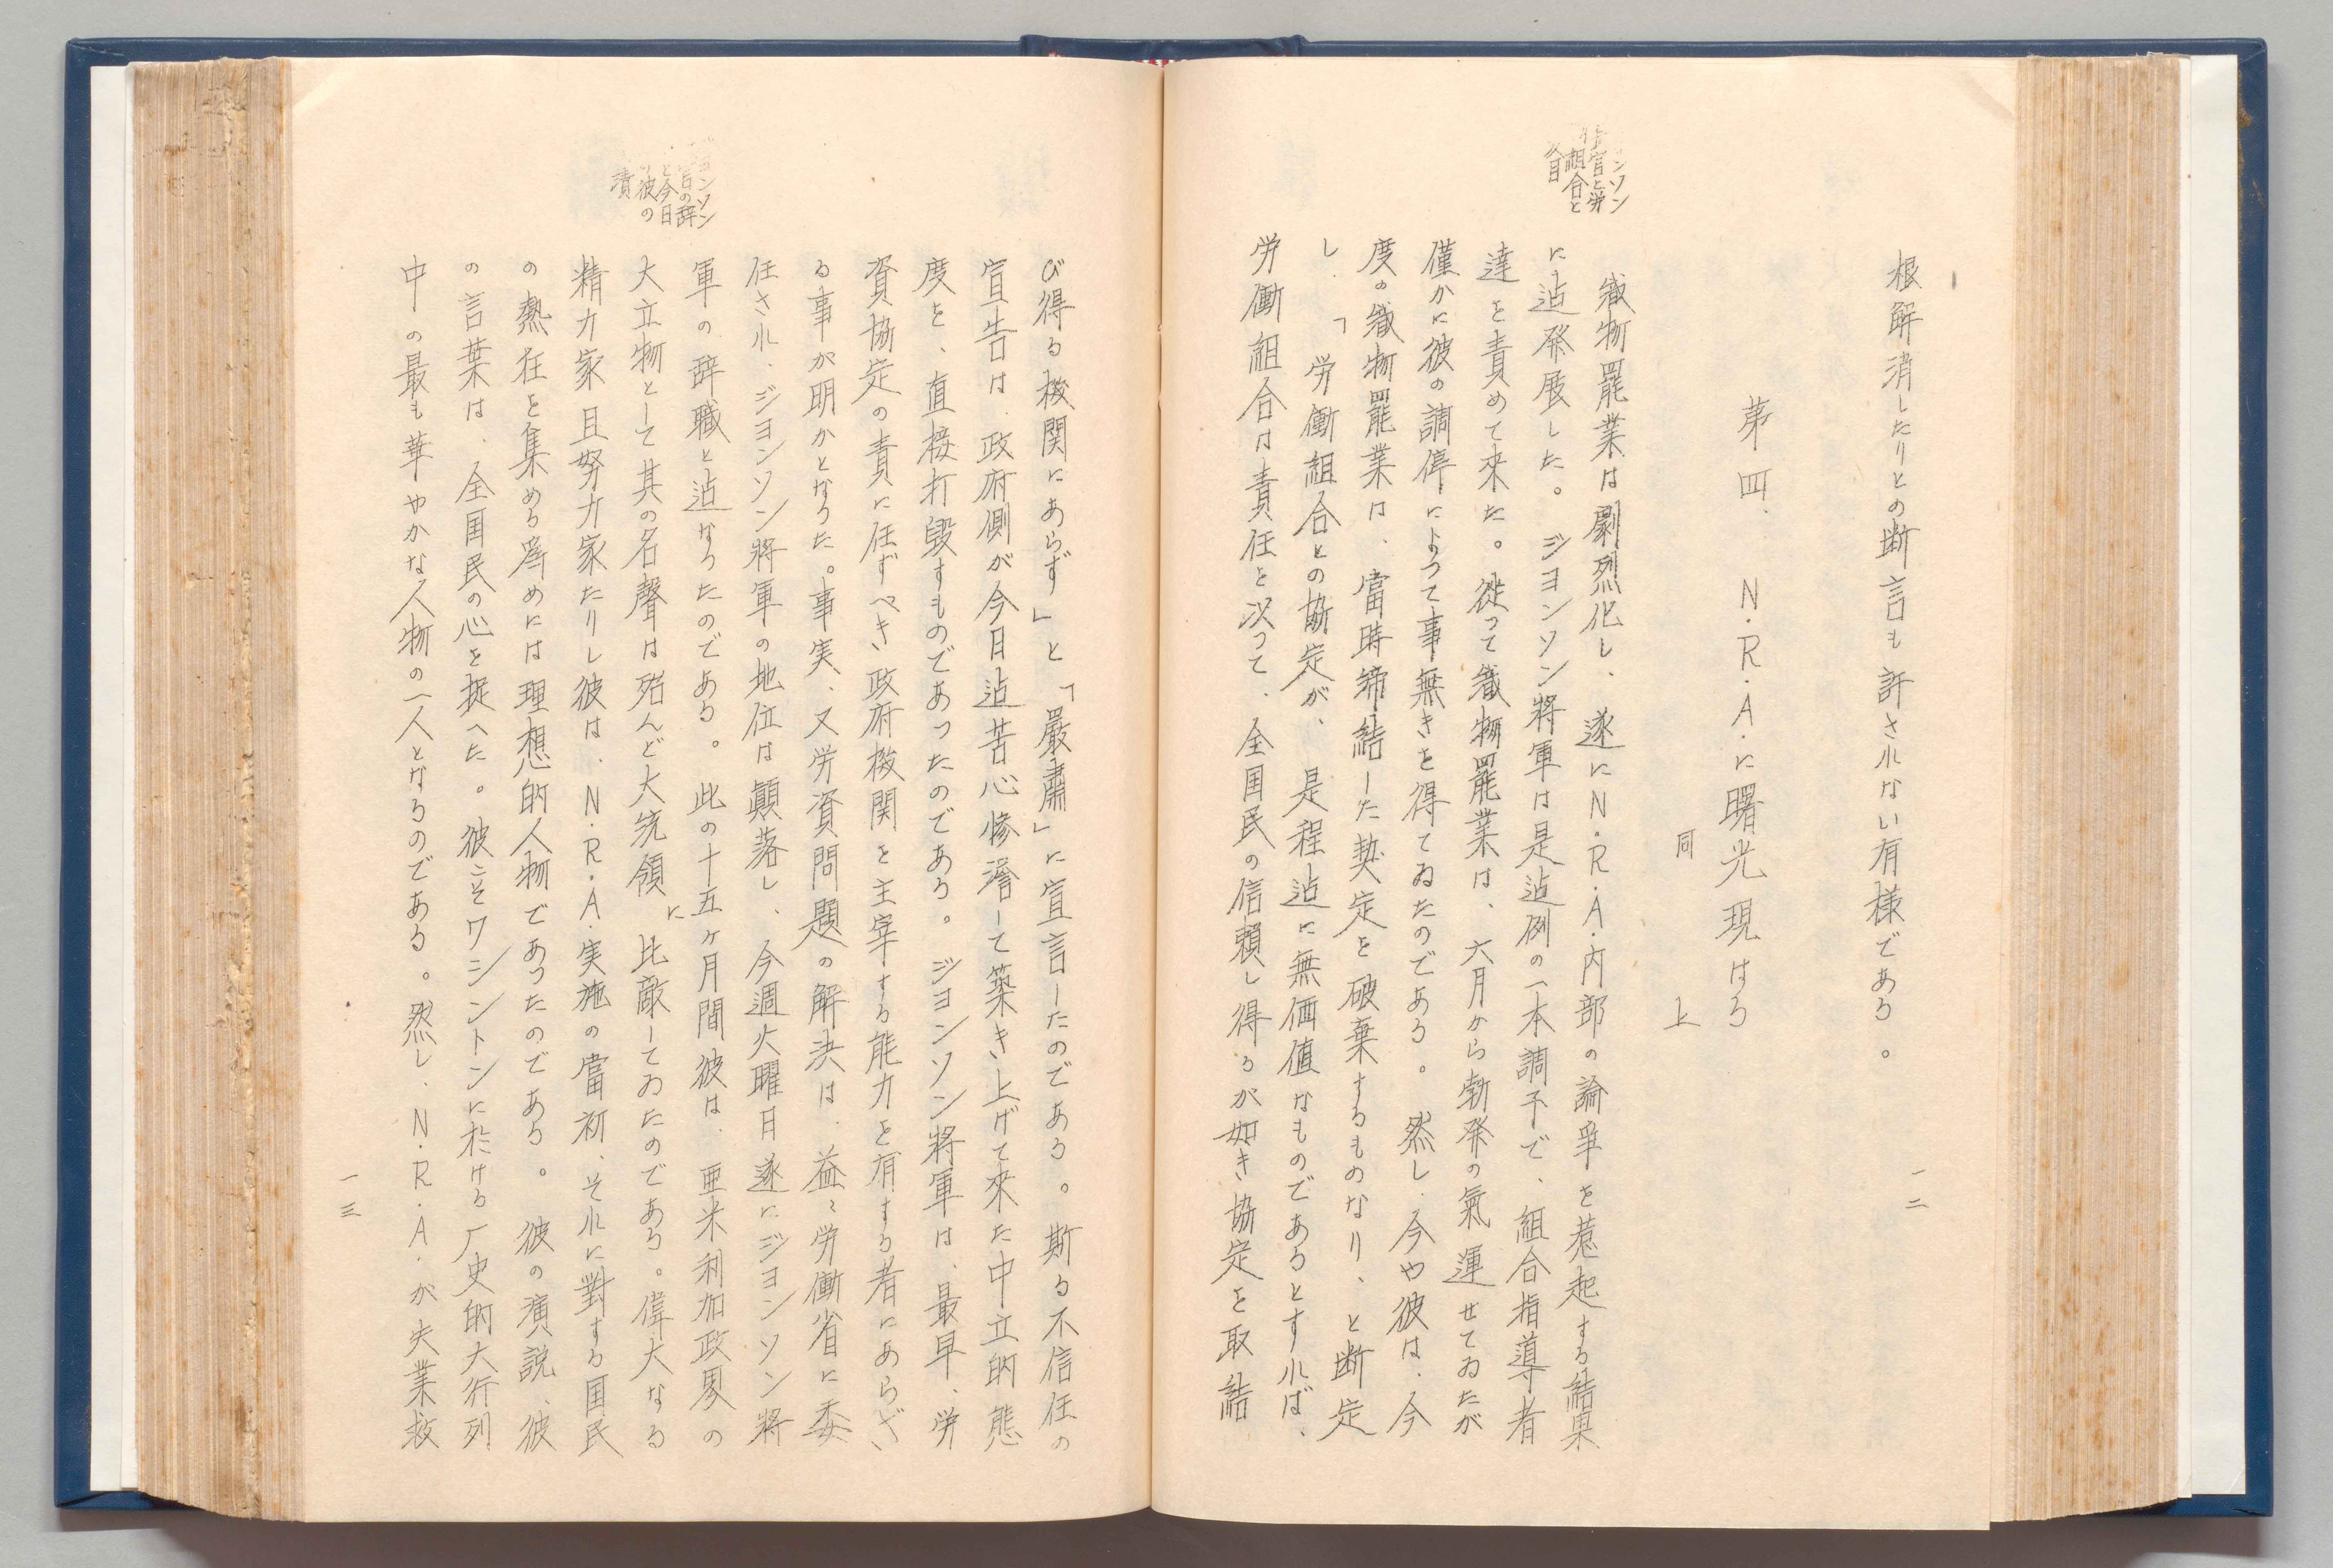 根解消したりとの断言も許されない有様である。
第四、N.R.A.に曙光現はる
同上
織物罷業は劇烈化し、遂にN.R.A.内部の論爭を惹起する結果
に迠発展した。ジヨンソン將軍は是迠例の一本調子で、組合指導者
達を責めて來た。從って織物罷業は、六月から勃発の氣運せてゐたが
僅かに彼の調停によって事無きを得てゐたのである。然し、今や彼は、今
度の織物罷業は、當時締結した契定を破棄するものなり、と断定
し、「労働組合との協定が、是程迠に無価値なものであるとすれば、
労働組合は責任を以って、全国民の信頼し得るが如き協定を取結
一二
び得る機関にあらず」と「嚴肅」に宣言したのである。斯る不信任の
宣告は、政府側が今日迠苦心惨澹して築き上げて來た中立的態
度を、直接打毀すものであったのである。ジヨンソン將軍は、最早、労
資協定の責に任ずべき政府機関を主宰する能力を有する者にあらざ
る事が明かとなった。事実、又労資問題の解決は、益々労働省に委
任され、ジヨンソン將軍の地位は顛落し、今週火曜日遂にジヨンソン將
軍の辞職と迠なったのである。此の十五ヶ月間彼は、亜米利加政界の
大立物として其の名聲は殆んど大統領に比敵してゐたのである。偉大なる
精力家且努力家たりし彼は、N.R.A.実施の當初、それに對する国民
の熱狂を集める爲めには理想的人物であったのである。彼の演説、彼
の言葉は、全国民の心を捉へた。彼こそワシントンに於ける厂史的大行列
中の最も華やかな人物の一人となるのである。然し、N.R.A.が失業救
一三